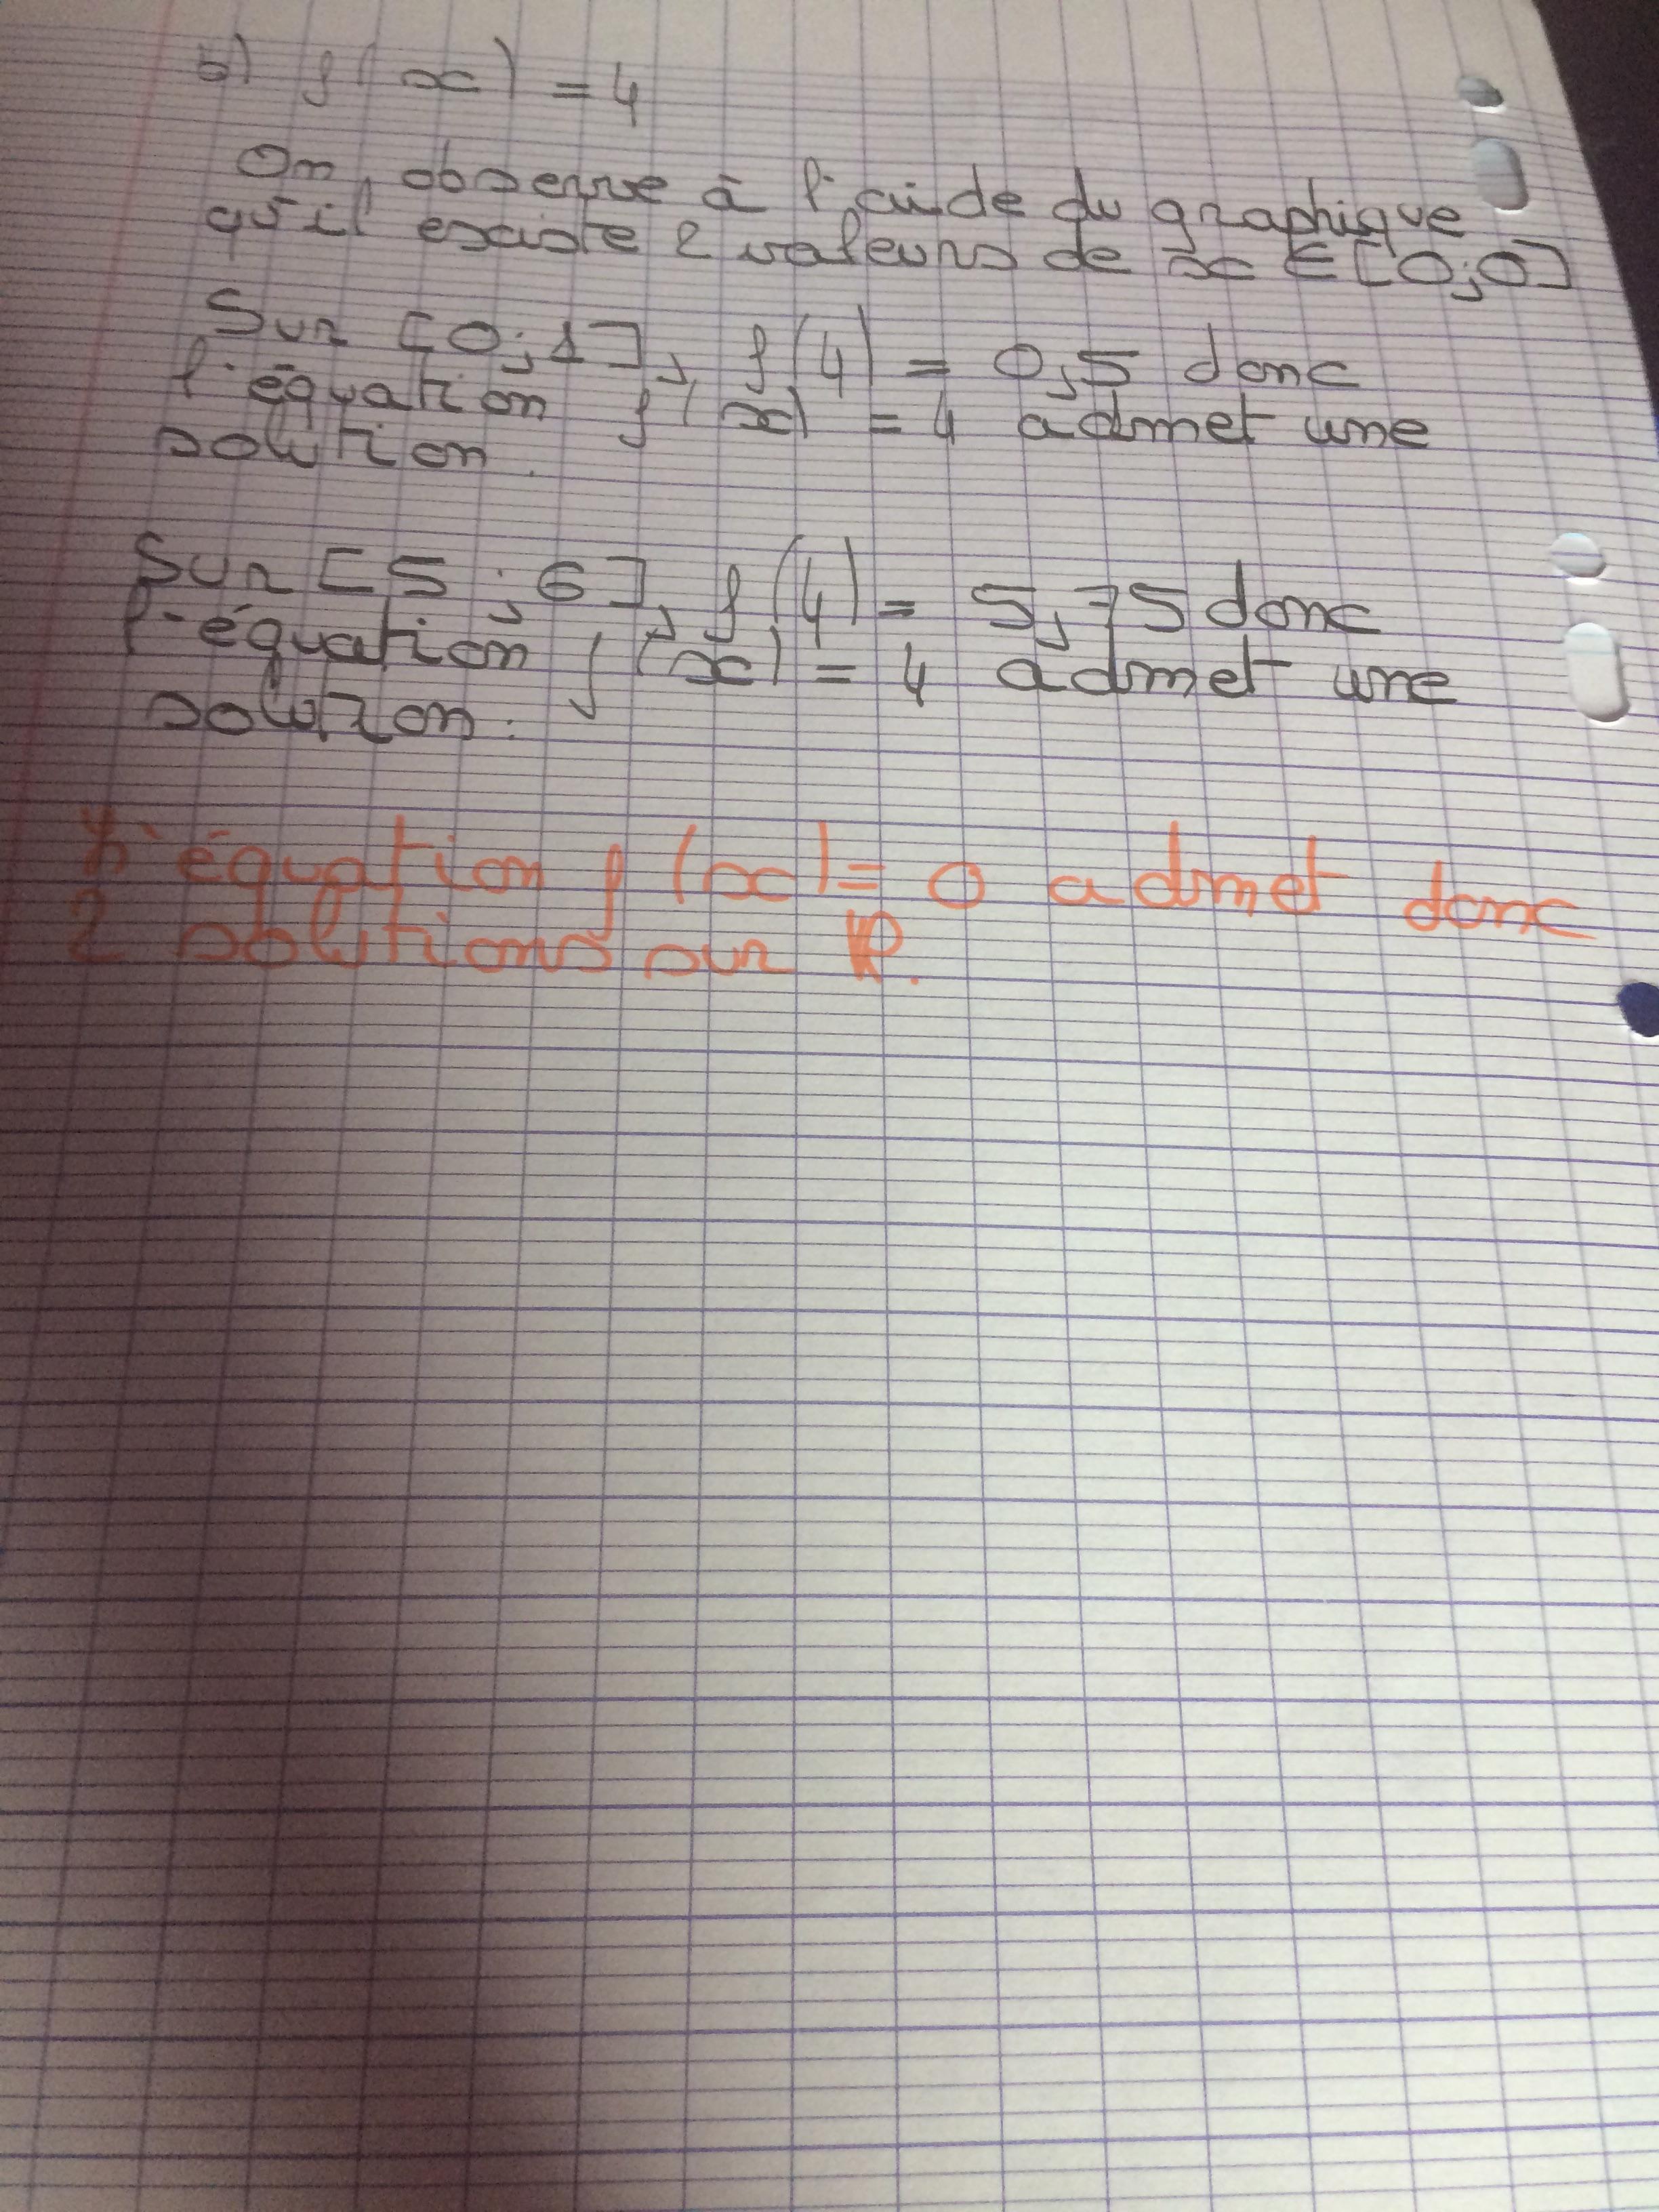 b) f(x) = 4
On observe à l'aide du graphique
qu'il existe 2 valeurs de x ∈ [0;0]
Sur [0;1], f(4) = 0,5 donc
l'équation f(x) = 4 admet une
solution.
Sur [5;6], f(4) = 5,75 donc
l'équation f(x) = 4 admet une
solution.
L'équation f(x) = 0 admet donc
2 solutions sur ℝ.